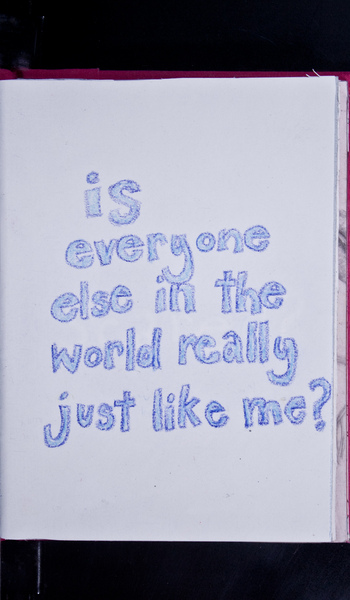 is
everyone
else in the
world really
just like me?